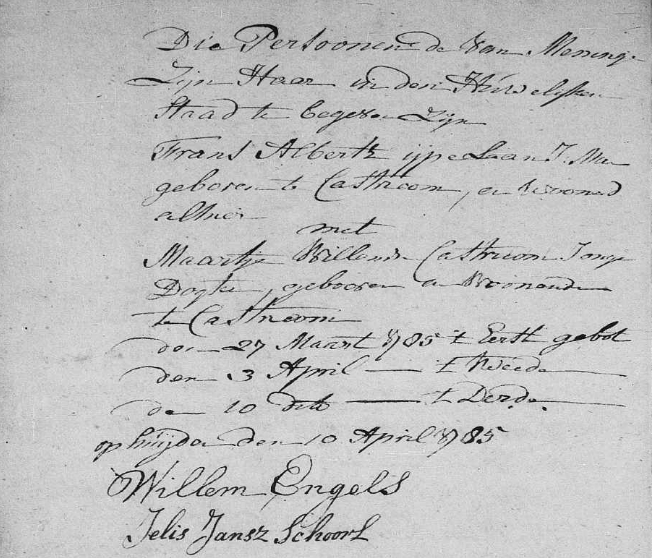 Die Persoonen de van Meninge
Zijn Haar in den Húwelijken
Staad te begeven Zijn
Frans Albertz ijpelaan J. Ma
geboren te Castricom, en woonend
alhier
met
Maartje Willems Castricom Jonge
Dogter, gebooren en Woonende
te Castricom
den 27 Maart 1785 't Eerst gebot
den 3 April — t tweede
den 10 dito — t Derde
op húijden den 10 April 1785
Willem Engels
Jelis Jansz Schoorl